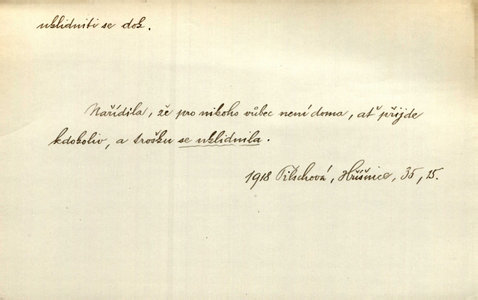 uklidniti se dok.
Nařídila, že pro nikoho vůbec není doma, ať přijde
kdokoliv, a trošku se uklidnila.
1918 Pilschová, Hříšnice, 35, 15.